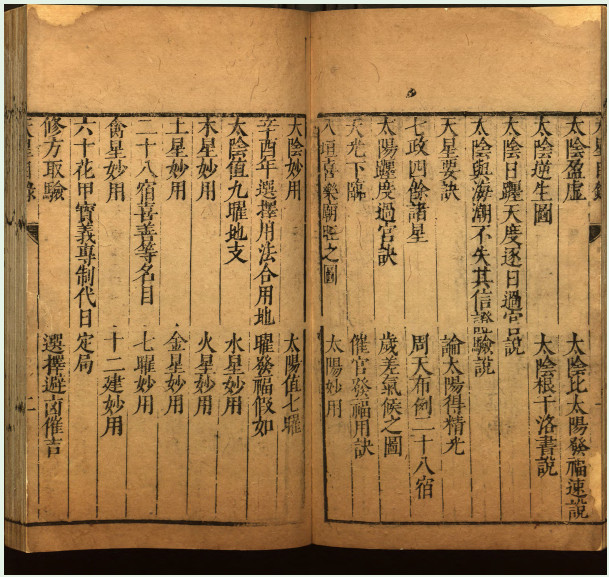 天星目錄
太陰盈虛　太陰比太陽發福速說
太陰逆生圖　太陰根于洛書說
太陰日躔天度逐日過宮說
太陰與海潮不失其信證驗說
天星要訣　論太陽得精光
七政四餘諸星　周天布劍二十八宿
太陽躔度過宮訣　歲差氣候之圖
天光下臨　催官發福用訣
入垣喜樂廟旺之圖　太陽妙用
太陰妙用　太陽值七曜
辛酉年選擇用法合用地曜發福假如
太陰值九曜地支　水星妙用
木星妙用　火星妙用
土星妙用　金星妙用
二十八宿喜善等名目　七曜妙用
禽星妙用　十二建妙用
六十花甲寶義專制代日定局
修方取驗　選擇避凶催吉
天星目錄　二